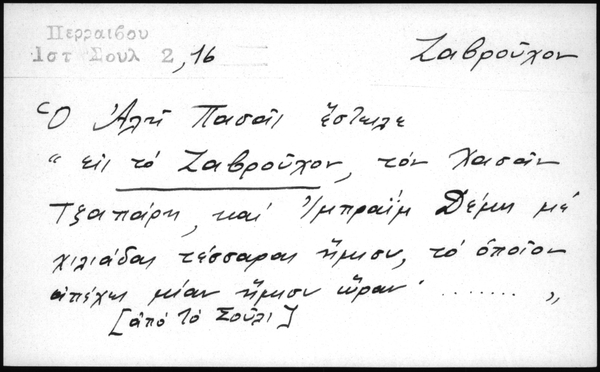 Περραιβου
Ιστ Σουλ 2,16
Ζαβροῦχον
Ὁ Ἀλῆ Πασᾶς ἔστειλε
" εἰς τό Ζαβροῦχον, τόν Χασάν
Τζαπάρη, καί Ἰμπραΐμ Δέμη μέ
χιλιάδας τέσσαρας ἥμισυ, τό ὁποῖον
ἀπέχει μίαν ἥμισυ ὥραν ........ "
[ἀπό τό Σοῦλι]